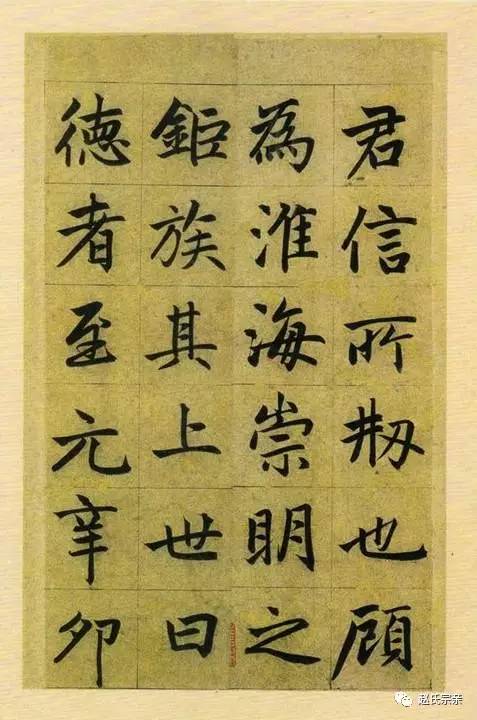 君信所刱也顧
為淮海崇明之
鉅族其上世曰
德者至元辛卯
赵氏宗亲